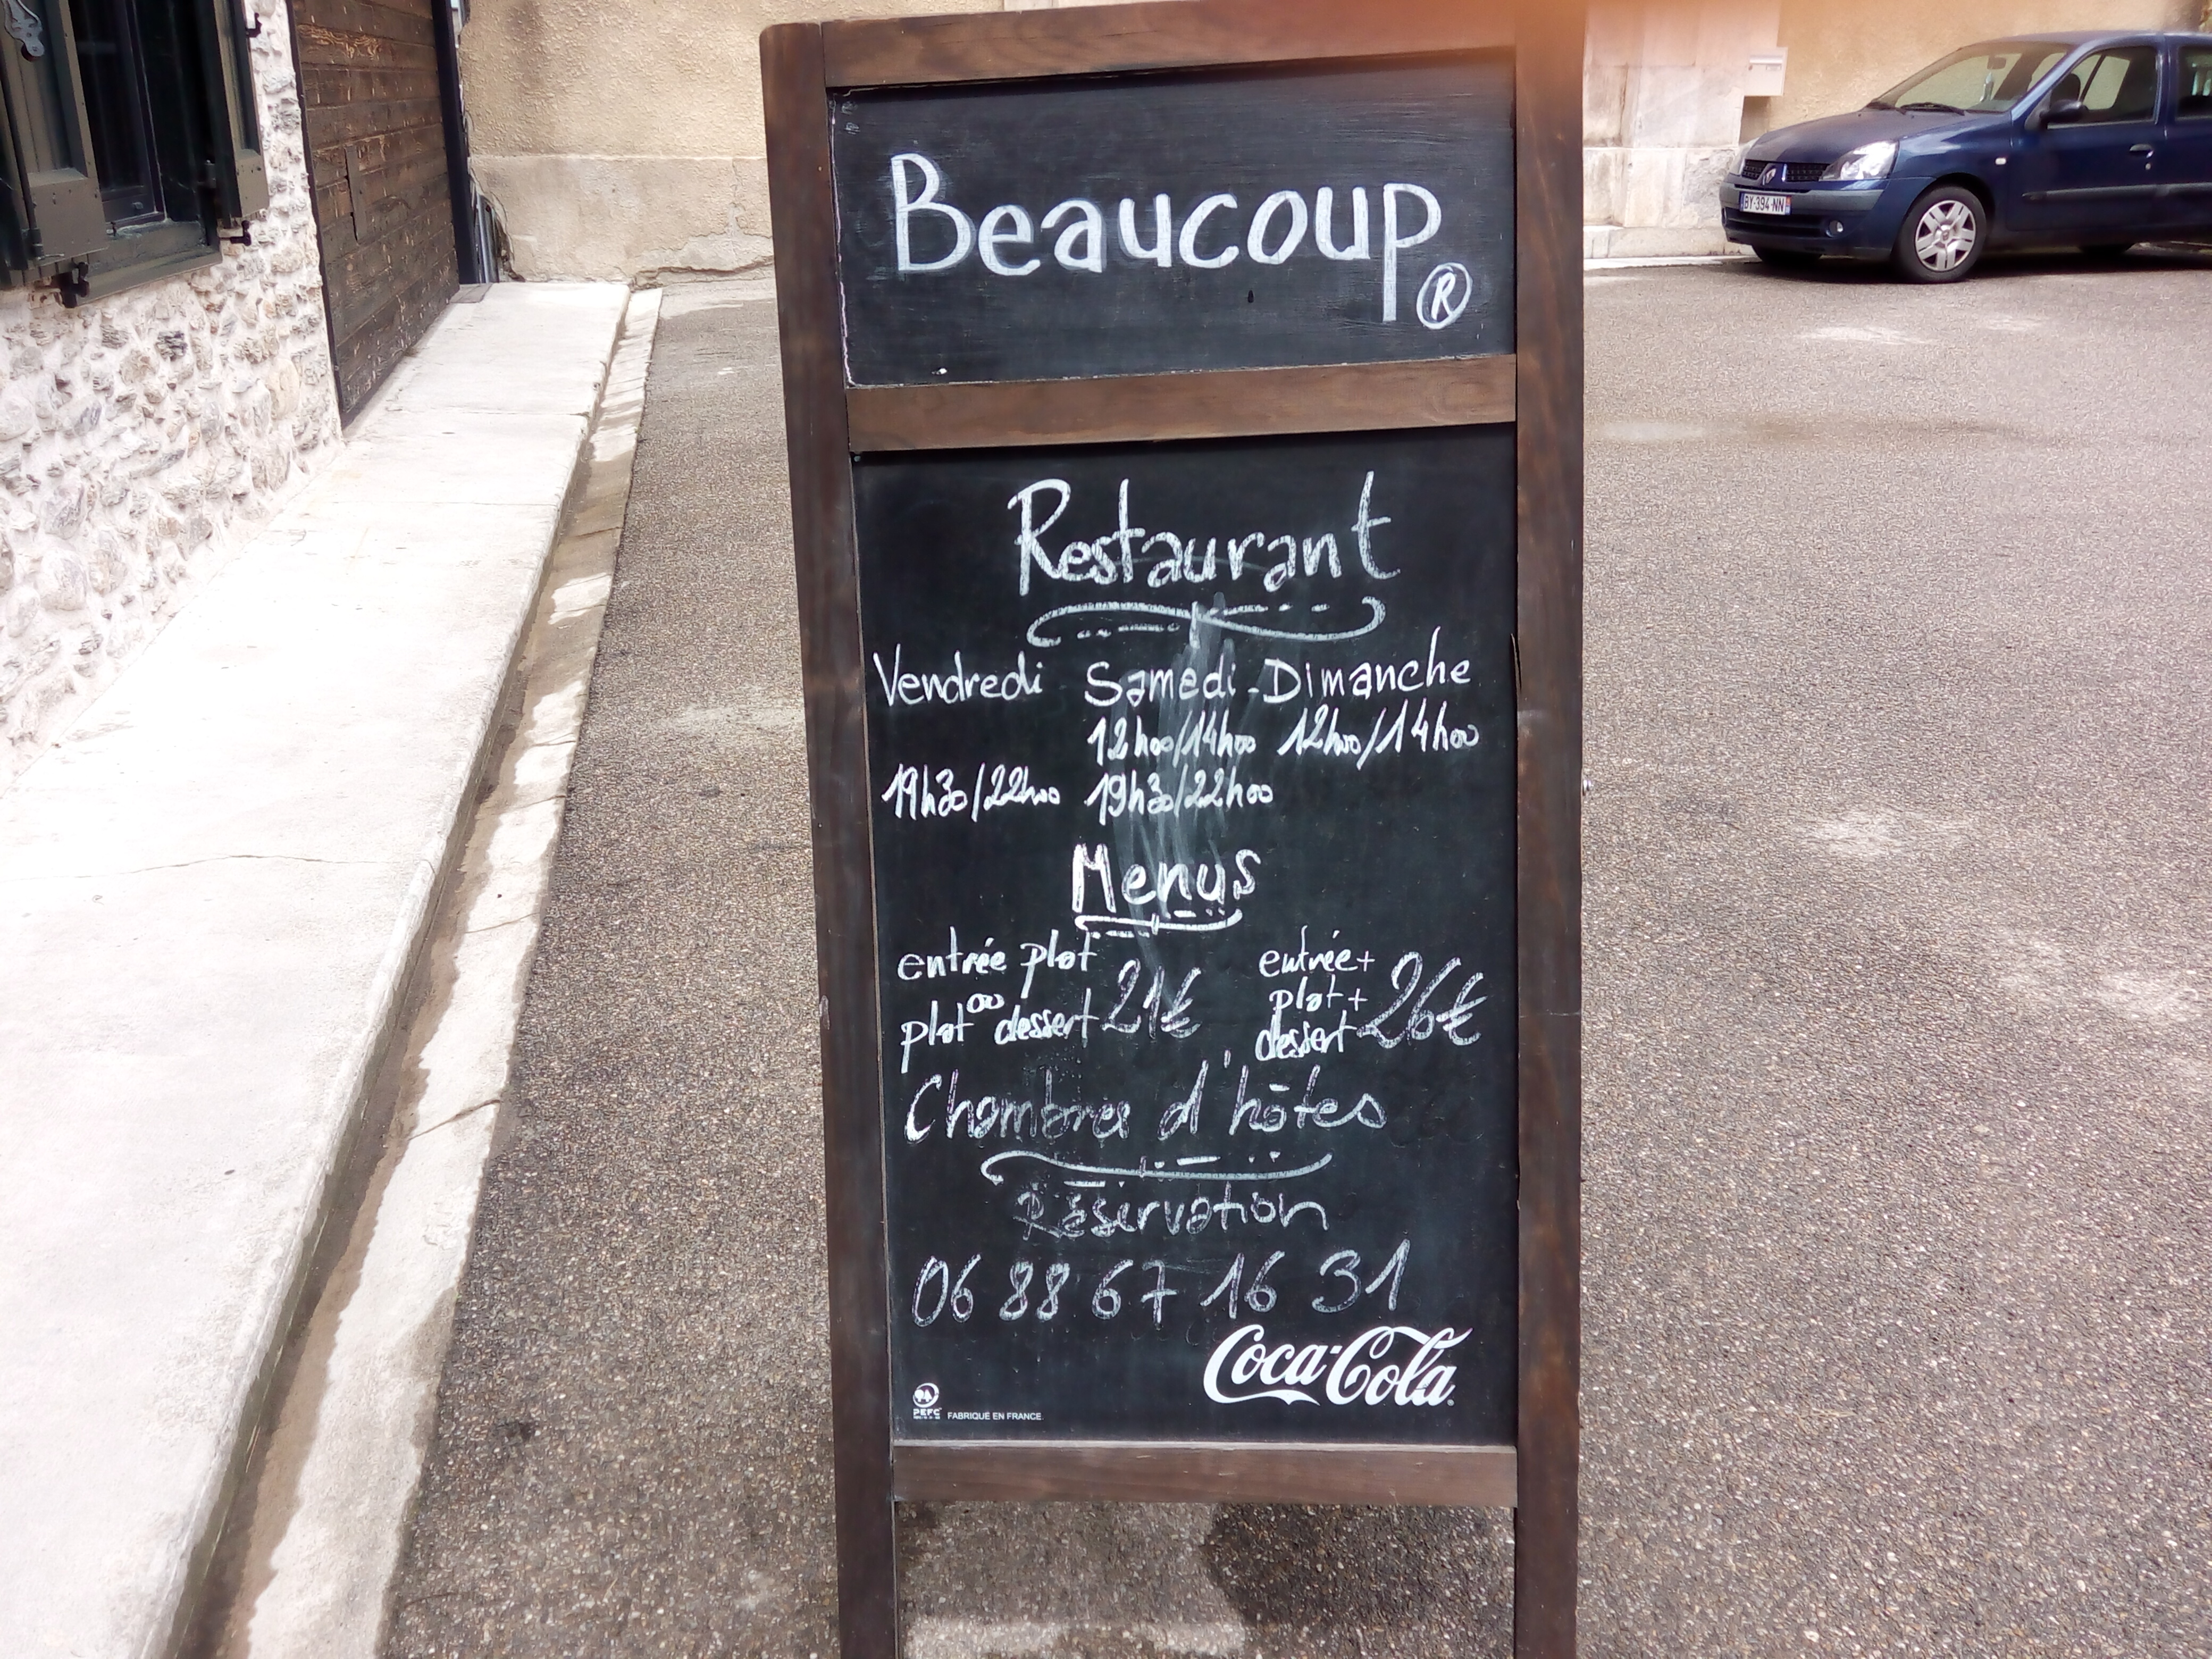 Beaucoup
®
Restaurant
Vendredi Samedi - Dimanche
12h00/14h00 12h00/14h00
19h30/22h00 19h30/22h00
Menus
entrée plat
ou
plat dessert 21€
entrée+
plat+
dessert 26€
Chambres d'hôtes
Réservation
06 88 67 16 31
Coca-Cola
PEFC
FABRIQUÉ EN FRANCE
BY-394-NN